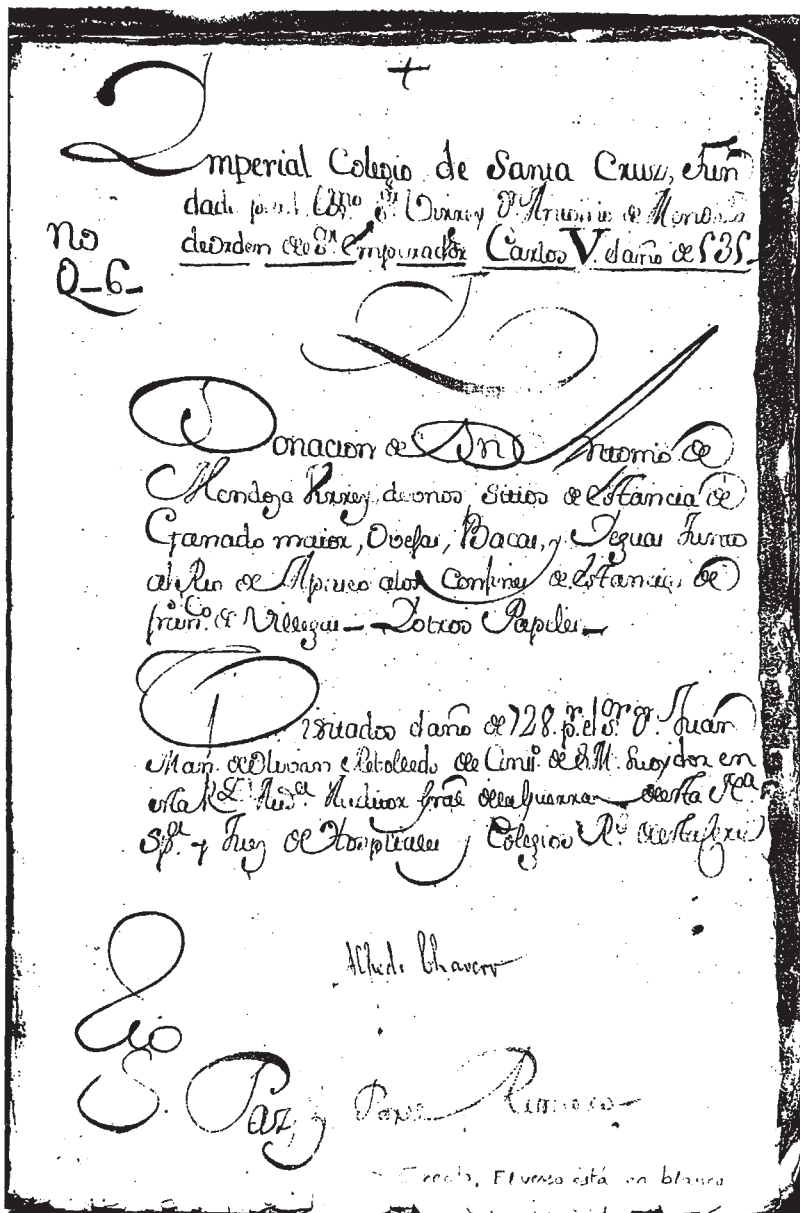 +
Imperial Colegio de Santa Cruz, Fun
dado por el Exmo Sr Virrey Dn Antonio de Mendoza
de orden de Sr Emperador Carlos V. el año de 535_
No
0_6_
Donacion de Dn Antonio de
Mendoza Virrey, de unos sitios de Estancia de
Ganado maior, Ovejas, Bacas, y Yeguas Junto
al Rio de Apaseo a los Confines de Estancia de
franco. de Villegas_ Y otros Papeles_
Visitados el año de 728. pr. el Sr. Dn. Juan
Man. de Olivan Rebolledo de Consº. de S. M. su oydor en
esta Rl. Audª. Auditor Gral de la Guerra de esta Nª.
Spª. y Juez de Hospitales y Colegios Rs. de
Alfredo Chavero
Lic
S. Paz, y
Recto. El verso está en blanco